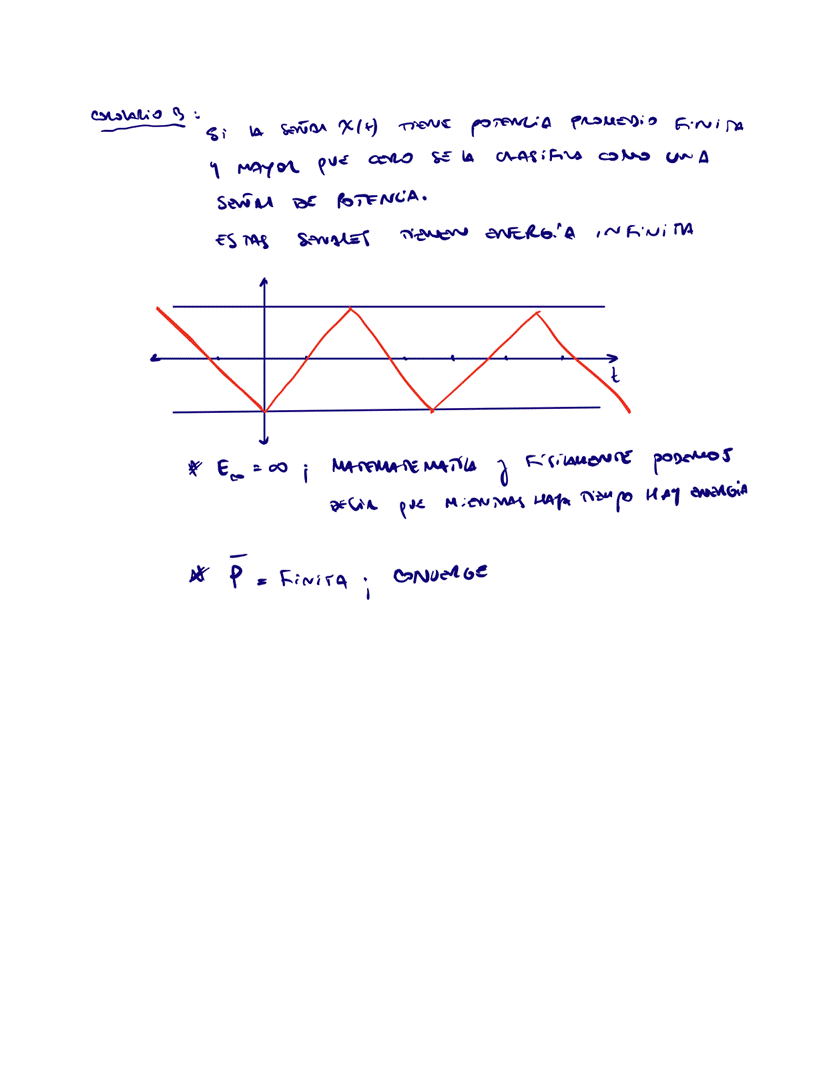 COROLARIO 3:
Si LA SEÑAL X(t) TIENE POTENCIA PROMEDIO FiNiTA
Y MAYOR QUE CERO SE LA CLASIFICA COMO UNA
SEÑAL DE POTENCIA.
ESTAS SEÑALES TIENEN ENERGÍA INFINITA
t
* E∞ = ∞ ; MATEMATEMATICA y FíSICAMENTE PODEMOS
DECIR QUE MIENTRAS HAYA TIEMPO HAY ENERGIA
* P̅ = FiNiTA ; CONVERGE